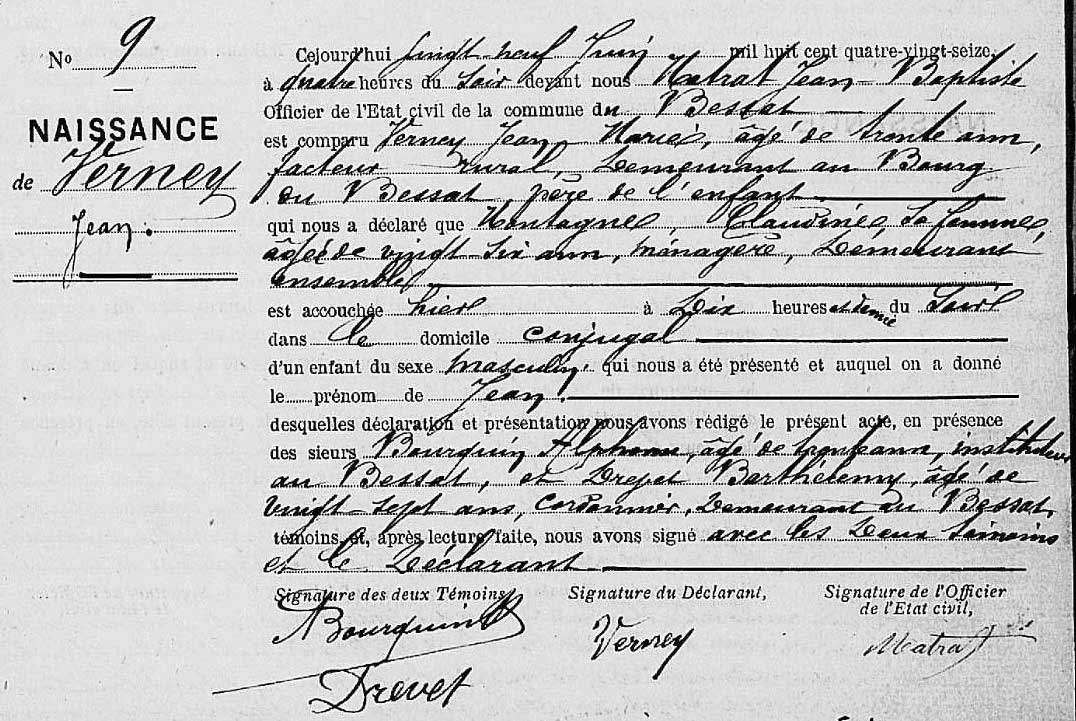 N° 9
NAISSANCE
de Verney
Jean.
Cejourd'hui vingt-neuf Juin mil huit cent quatre-vingt-seize,
à quatre heures du Soir devant nous Matrat Jean-Baptiste
Officier de l'Etat civil de la commune du Bessat
est comparu Verney Jean Marie, âgé de trente ans,
facteur rural, demeurant au Bourg
du Bessat père de l'enfant
qui nous a déclaré que Montagne, Claudine, sa femme,
âgée de vingt six ans, ménagère, demeurant
ensemble
est accouchée hier à Dix heures et demie du Soir
dans le domicile conjugal
d'un enfant du sexe masculin, qui nous a été présenté et auquel on a donné
le prénom de Jean.
desquelles déclaration et présentation nous avons rédigé le présent acte, en présence
des sieurs Bourquin Alphonse, âgé de trente ans, instituteur
au Bessat, et Drevet Barthélemy, âgé de
vingt-sept ans, cordonnier, demeurant au Bessat,
témoins et, après lecture faite, nous avons signé avec les deux témoins
et le Déclarant
Signature des deux Témoins, Signature du Déclarant, Signature de l'Officier
de l'Etat civil,
Bourquin Verney Matrat
Drevet